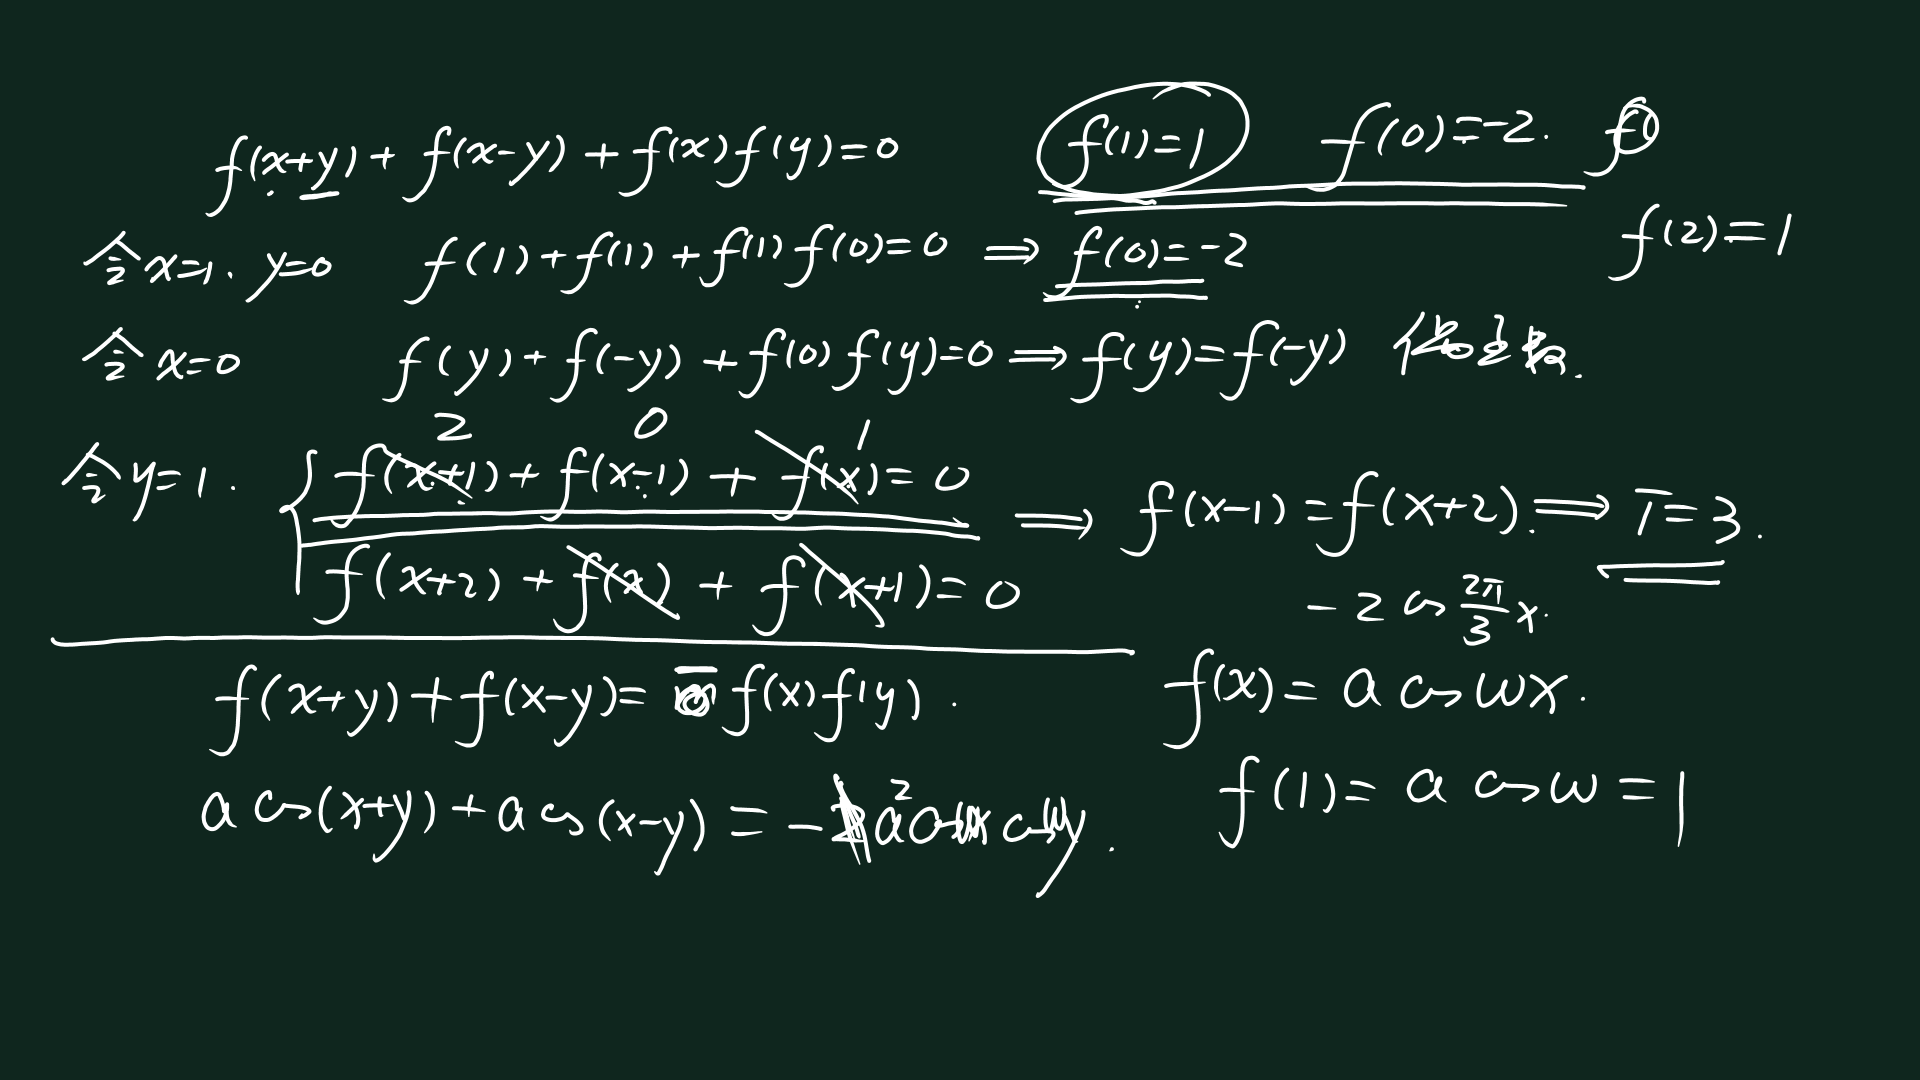 f(x+y) + f(x-y) + f(x)f(y)=0 f(1)=1 f(0)=-2.
f(2)=1
令 x=1. y=0 f(1)+f(1)+f(1)f(0)=0 ⇒ f(0)=-2
令 x=0 f(y)+f(-y)+f(0)f(y)=0 ⇒ f(y)=f(-y)
2 0 1
令 y=1. f(x+1)+f(x-1)+f(x)=0
f(x+2)+f(x)+f(x+1)=0
⇒ f(x-1)=f(x+2). ⇒ T=3.
-2 cos 2π/3 x.
f(x+y)+f(x-y)= - f(x)f(y).
f(x)= a cos wx.
a cos(x+y)+a cos(x-y)= - a² cos wx cos wy.
f(1)= a cos w = 1